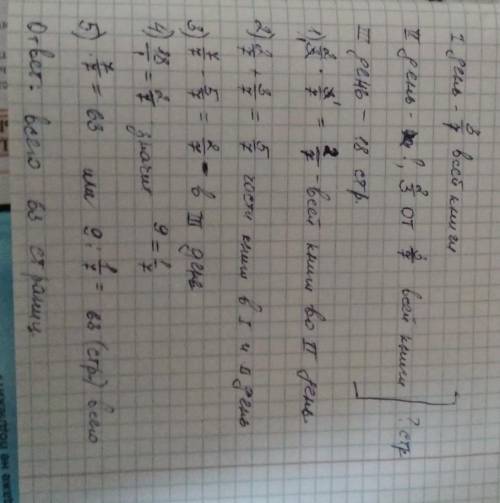 I день - 3/7 всей книги
II день - ?, 2/3 от 3/7 всей книги ? стр
III день - 18 стр.
1) 2/3 · 3/7 = 2/7 - всей книги во II день.
2) 2/7 + 3/7 = 5/7 части книги в I и II день
3) 7/7 - 5/7 = 2/7 - в III день
4) 18/1 = 2/7 значит 9 = 1/7
5) 7/7 = 63 или 9 : 1/7 = 63 (стр) всего
Ответ: всего 63 страниц
даже не подлежит